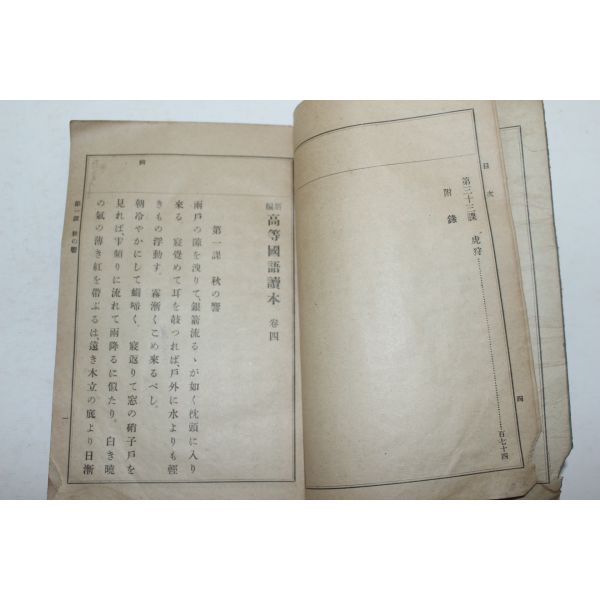 目次
第三十三課 虎狩……百七十四
附錄
四
新編 高等國語讀本 卷四
第一課 秋の響
雨戶の隙を洩りて、銀箭流るゝが如く枕頭に入り
來る。寢覺めて耳を鼓つれば、戶外に水よりも輕
きもの浮動す。霧漸くこめ來るべし。
朝冷やかにして蜩啼く。寢返りて窓の硝子戶を
見れば、雫頻りに流れて雨降るに似たり。白き曉
の氣の薄き紅を帶ぶるは、遠き木立の底より日漸
第一課 秋の響
一